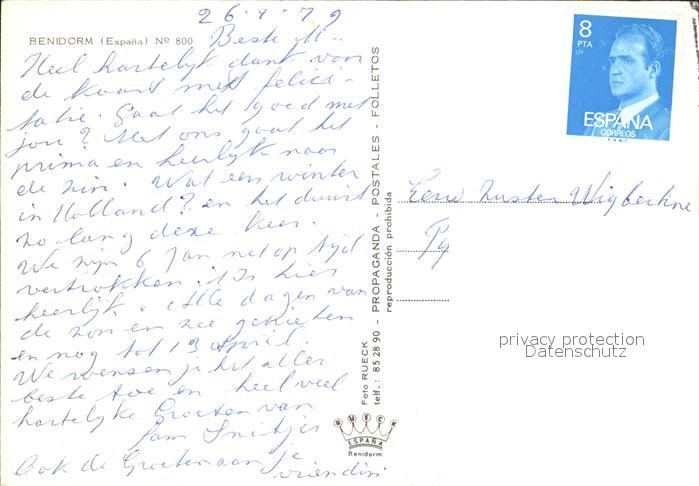 26-1-79
BENIDORM (España) Nº 800
Beste M..
Heel hartelijk dank voor
de kaart met felici-
tatie. Gaat het goed met
jou? Met ons gaat het
prima en heerlijk naar
de zin. Wat een winter
in Holland? en het duurt
zo lang deze keer.
We zijn 6 Jan net op tijd
vertrokken. 't Is hier
heerlijk. Alle dagen van
de zon en zee genieten
en nog tot 13 April.
We wensen je het aller
beste toe en heel veel
hartelijke Groeten van
fam
Ook de Groeten aan je
vriendin
Foto RUECK
telf.: 85 28 90 - PROPAGANDA - POSTALES - FOLLETOS
reproducción prohibida
RUECK
ESPAÑA
Benidorm
8
PTA
ESPAÑA
CORREOS
F.N.M.T.
Eerw Zuster
privacy protection
Datenschutz